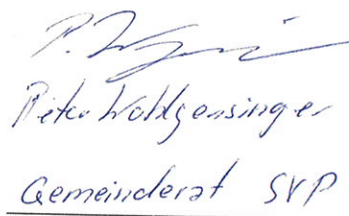 Peter Wohlgensinger
Gemeinderat SVP